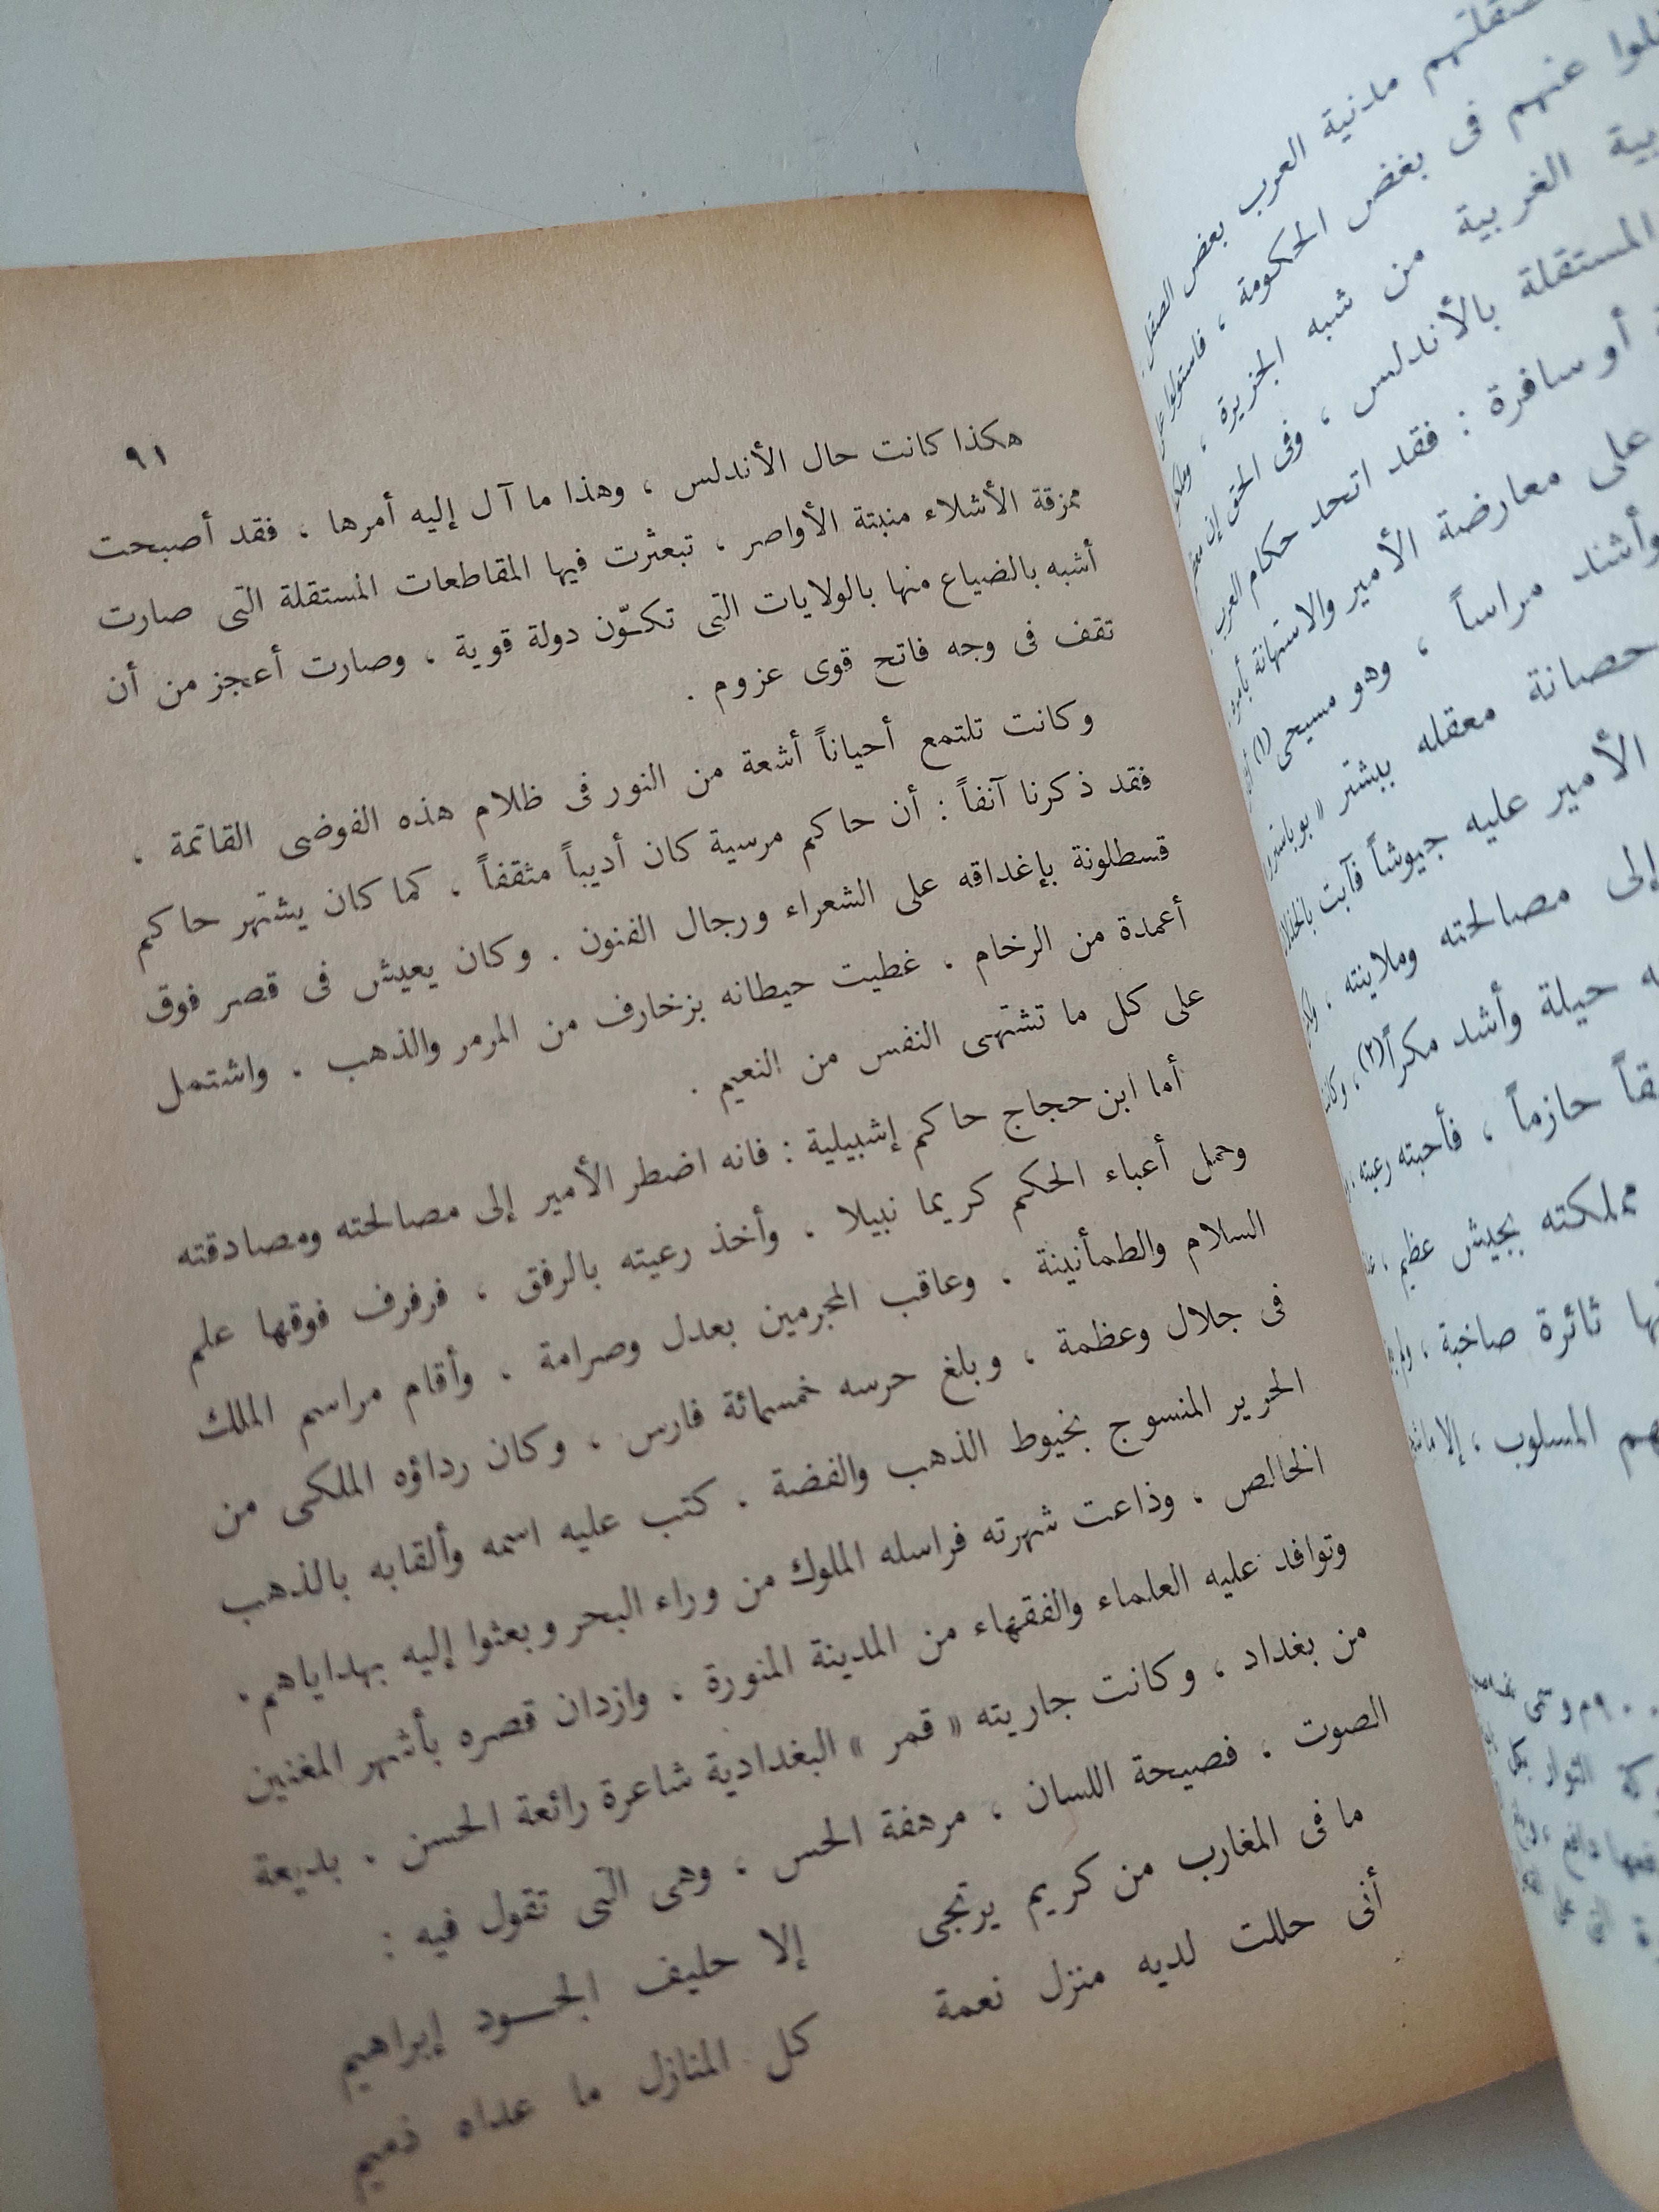 ٩١
هكذا كانت حال الأندلس ، وهذا ما آل إليه أمرها ، فقد أصبحت
ممزقة الأشلاء منبتة الأواصر ، تبعثرت فيها المقاطعات المستقلة التى صارت
أشبه بالضياع منها بالولايات التى تكوّن دولة قوية ، وصارت أعجز من أن
تقف فى وجه فاتح قوى عزوم .
وكانت تلتمع أحياناً أشعة من النور فى ظلام هذه الفوضى القاتمة ،
فقد ذكرنا آنفاً : أن حاكم مرسية كان أديباً مثقفاً ، كما كان يشتهر حاكم
قسطلونة بإغداقه على الشعراء ورجال الفنون . وكان يعيش فى قصر فوق
أعمدة من الرخام ، غطيت حيطانه بزخارف من المرمر والذهب ، واشتمل
على كل ما تشتهى النفس من النعيم .
أما ابن حجاج حاكم إشبيلية : فانه اضطر الأمير إلى مصالحته ومصادقته
وحمل أعباء الحكم كريما نبيلا ، وأخذ رعيته بالرفق ، فرفرف فوقها علم
السلام والطمأنينة ، وعاقب المجرمين بعدل وصرامة ، وأقام مراسم الملك
فى جلال وعظمة ، وبلغ حرسه خمسمائة فارس ، وكان رداؤه الملكى من
الحرير المنسوج بخيوط الذهب والفضة ، كتب عليه اسمه وألقابه بالذهب
الخالص ، وذاعت شهرته فراسله الملوك من وراء البحر وبعثوا إليه بهداياهم ،
وتوافد عليه العلماء والفقهاء من المدينة المنورة ، وازدان قصره بأشهر المغنين
من بغداد ، وكانت جاريته « قمر » البغدادية شاعرة رائعة الحسن ، بديعة
الصوت ، فصيحة اللسان ، مرهفة الحس ، وهى التى تقول فيه :
ما فى المغارب من كريم يرتجى إلا حليف الجود إبراهيم
أنى حللت لديه منزل نعمة كل المنازل ما عداه ذميم
مدنية العرب بعض
عنهم فى بغض الحكومة ، فاستولوا
الغربية من شبه الجزيرة ،
المستقلة بالأندلس ، وفى الحق إن
أو سافرة : فقد اتحد حكام العرب
على معارضة الأمير والاستهانة
وأشد مراساً ، وهو مسيحى (١)
حصانة معقله ببشتر «
الأمير عليه جيوشاً فآبت
إلى مصالحته وملاينته ،
حيلة وأشد مكراً (٢) ،
حازماً ، فأحبته رعيته ،
مملكته بجيش عظيم ،
ثائرة صاخبة ،
المسلوب ، إلا